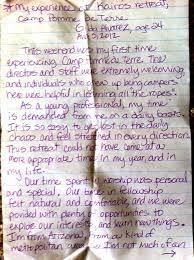 *My experience @ Kairos retreat,
Camp Pomme De Terre
Alvarez, age 24
Aug 5, 2012
This weekend was my first time
experiencing Camp Pomme de Terre. The
directors and staff were extremely welcoming,
and individuals who
were helpful in learning all the "ropes".
As a young professional, my time
is demanded from me on a daily basis.
It is so easy to get lost in the daily
chaos and feel stretched in every direction.
This retreat could not have came at a
more appropriate time in my year, and in
my life.
Our time spent in worship was personal
and special. Our time in fellowship
felt natural and comfortable, and we were
provided with plenty of opportunities to
explore our interests and learn new things.
I'm from Arizona. From a kind of
metropolitan area, so I'm not much of an